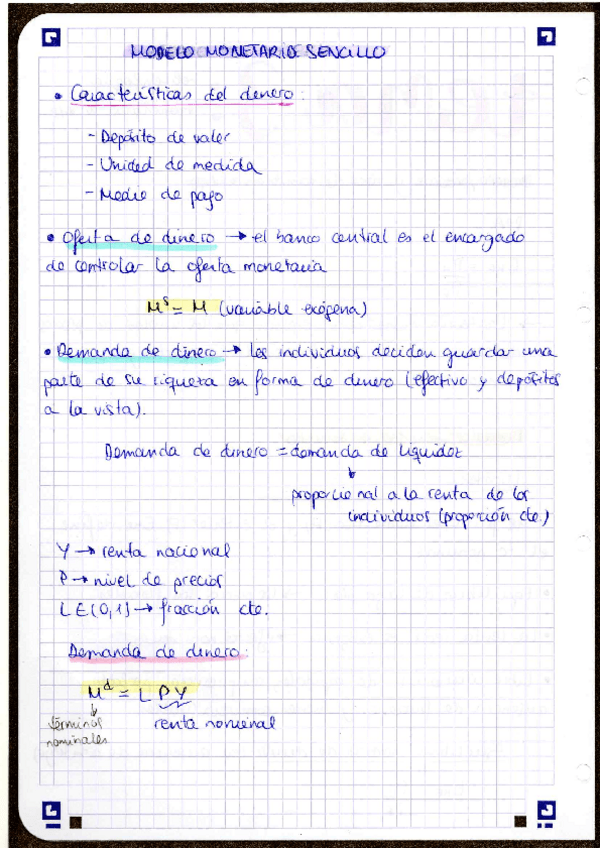 MODELO MONETARIO SENCILLO
• Características del dinero:
- Depósito de valor
- Unidad de medida
- Medio de pago
• Oferta de dinero → el banco central es el encargado
de controlar la oferta monetaria
Mˢ = M (variable exógena)
• Demanda de dinero → los individuos deciden guardar una
parte de su riqueza en forma de dinero (efectivo y depósitos
a la vista).
Demanda de dinero = demanda de liquidez
↓
proporcional a la renta de los
individuos (proporción cte.)
Y → renta nacional
P → nivel de precios
L ∈ (0,1) → fracción cte.
Demanda de dinero:
Mᵈ = L P Y
↓
términos renta nominal
nominales